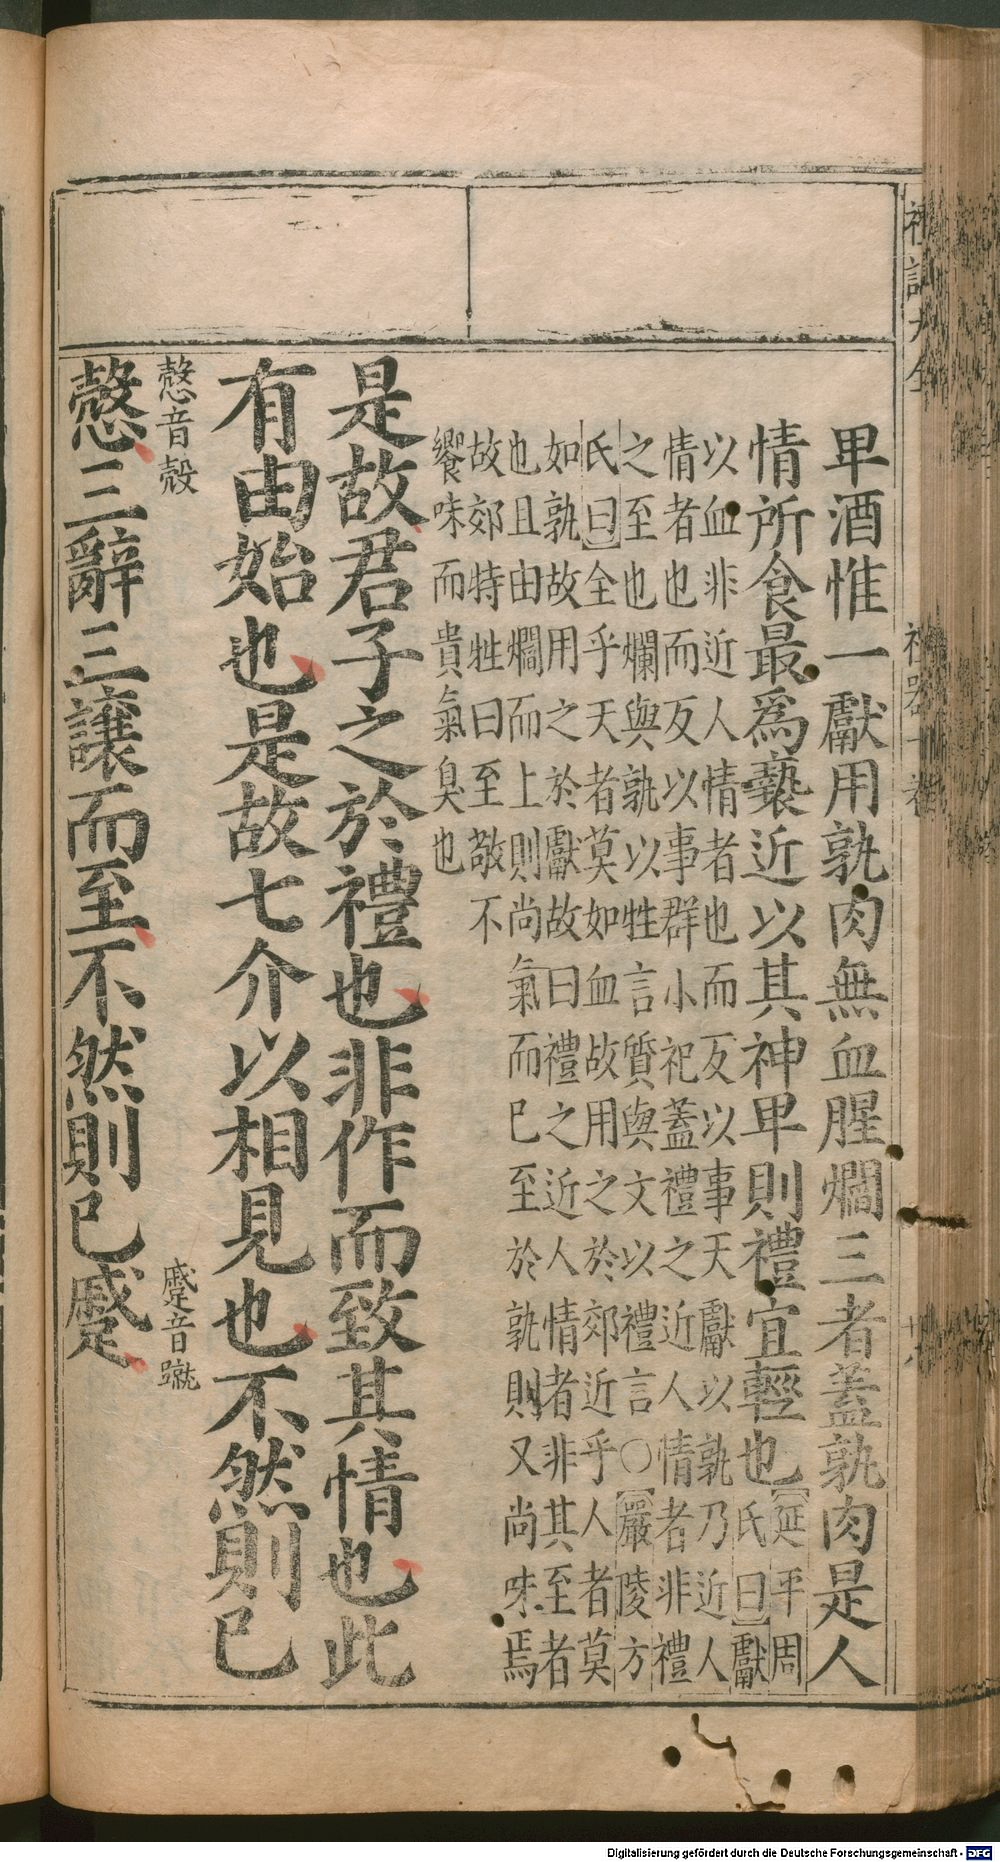 卑酒惟一獻用孰肉無血腥爓三者蓋孰肉是人
情所食最爲褻近以其神卑則禮宜輕也
延平周
氏曰獻
以血非近人情者也而反以事天獻以孰乃近人
情者也而反以事群小祀蓋禮之近人情者非禮
之至也爛與孰以牲言質與文以禮言○嚴陵方
氏曰全乎天者莫如血故用之於郊近乎人者莫
如孰故用之於獻故曰禮之近人情者非其至者
也且由爓而上則尚氣而已至於孰則又尚味焉
故郊特牲曰至敬不
饗味而貴氣臭也
是故君子之於禮也非作而致其情也此
有由始也是故七介以相見也不然則已
慤音殼
蹙音蹴
慤三辭三讓而至不然則已蹙
Digitalisierung gefördert durch die Deutsche Forschungsgemeinschaft - DFG